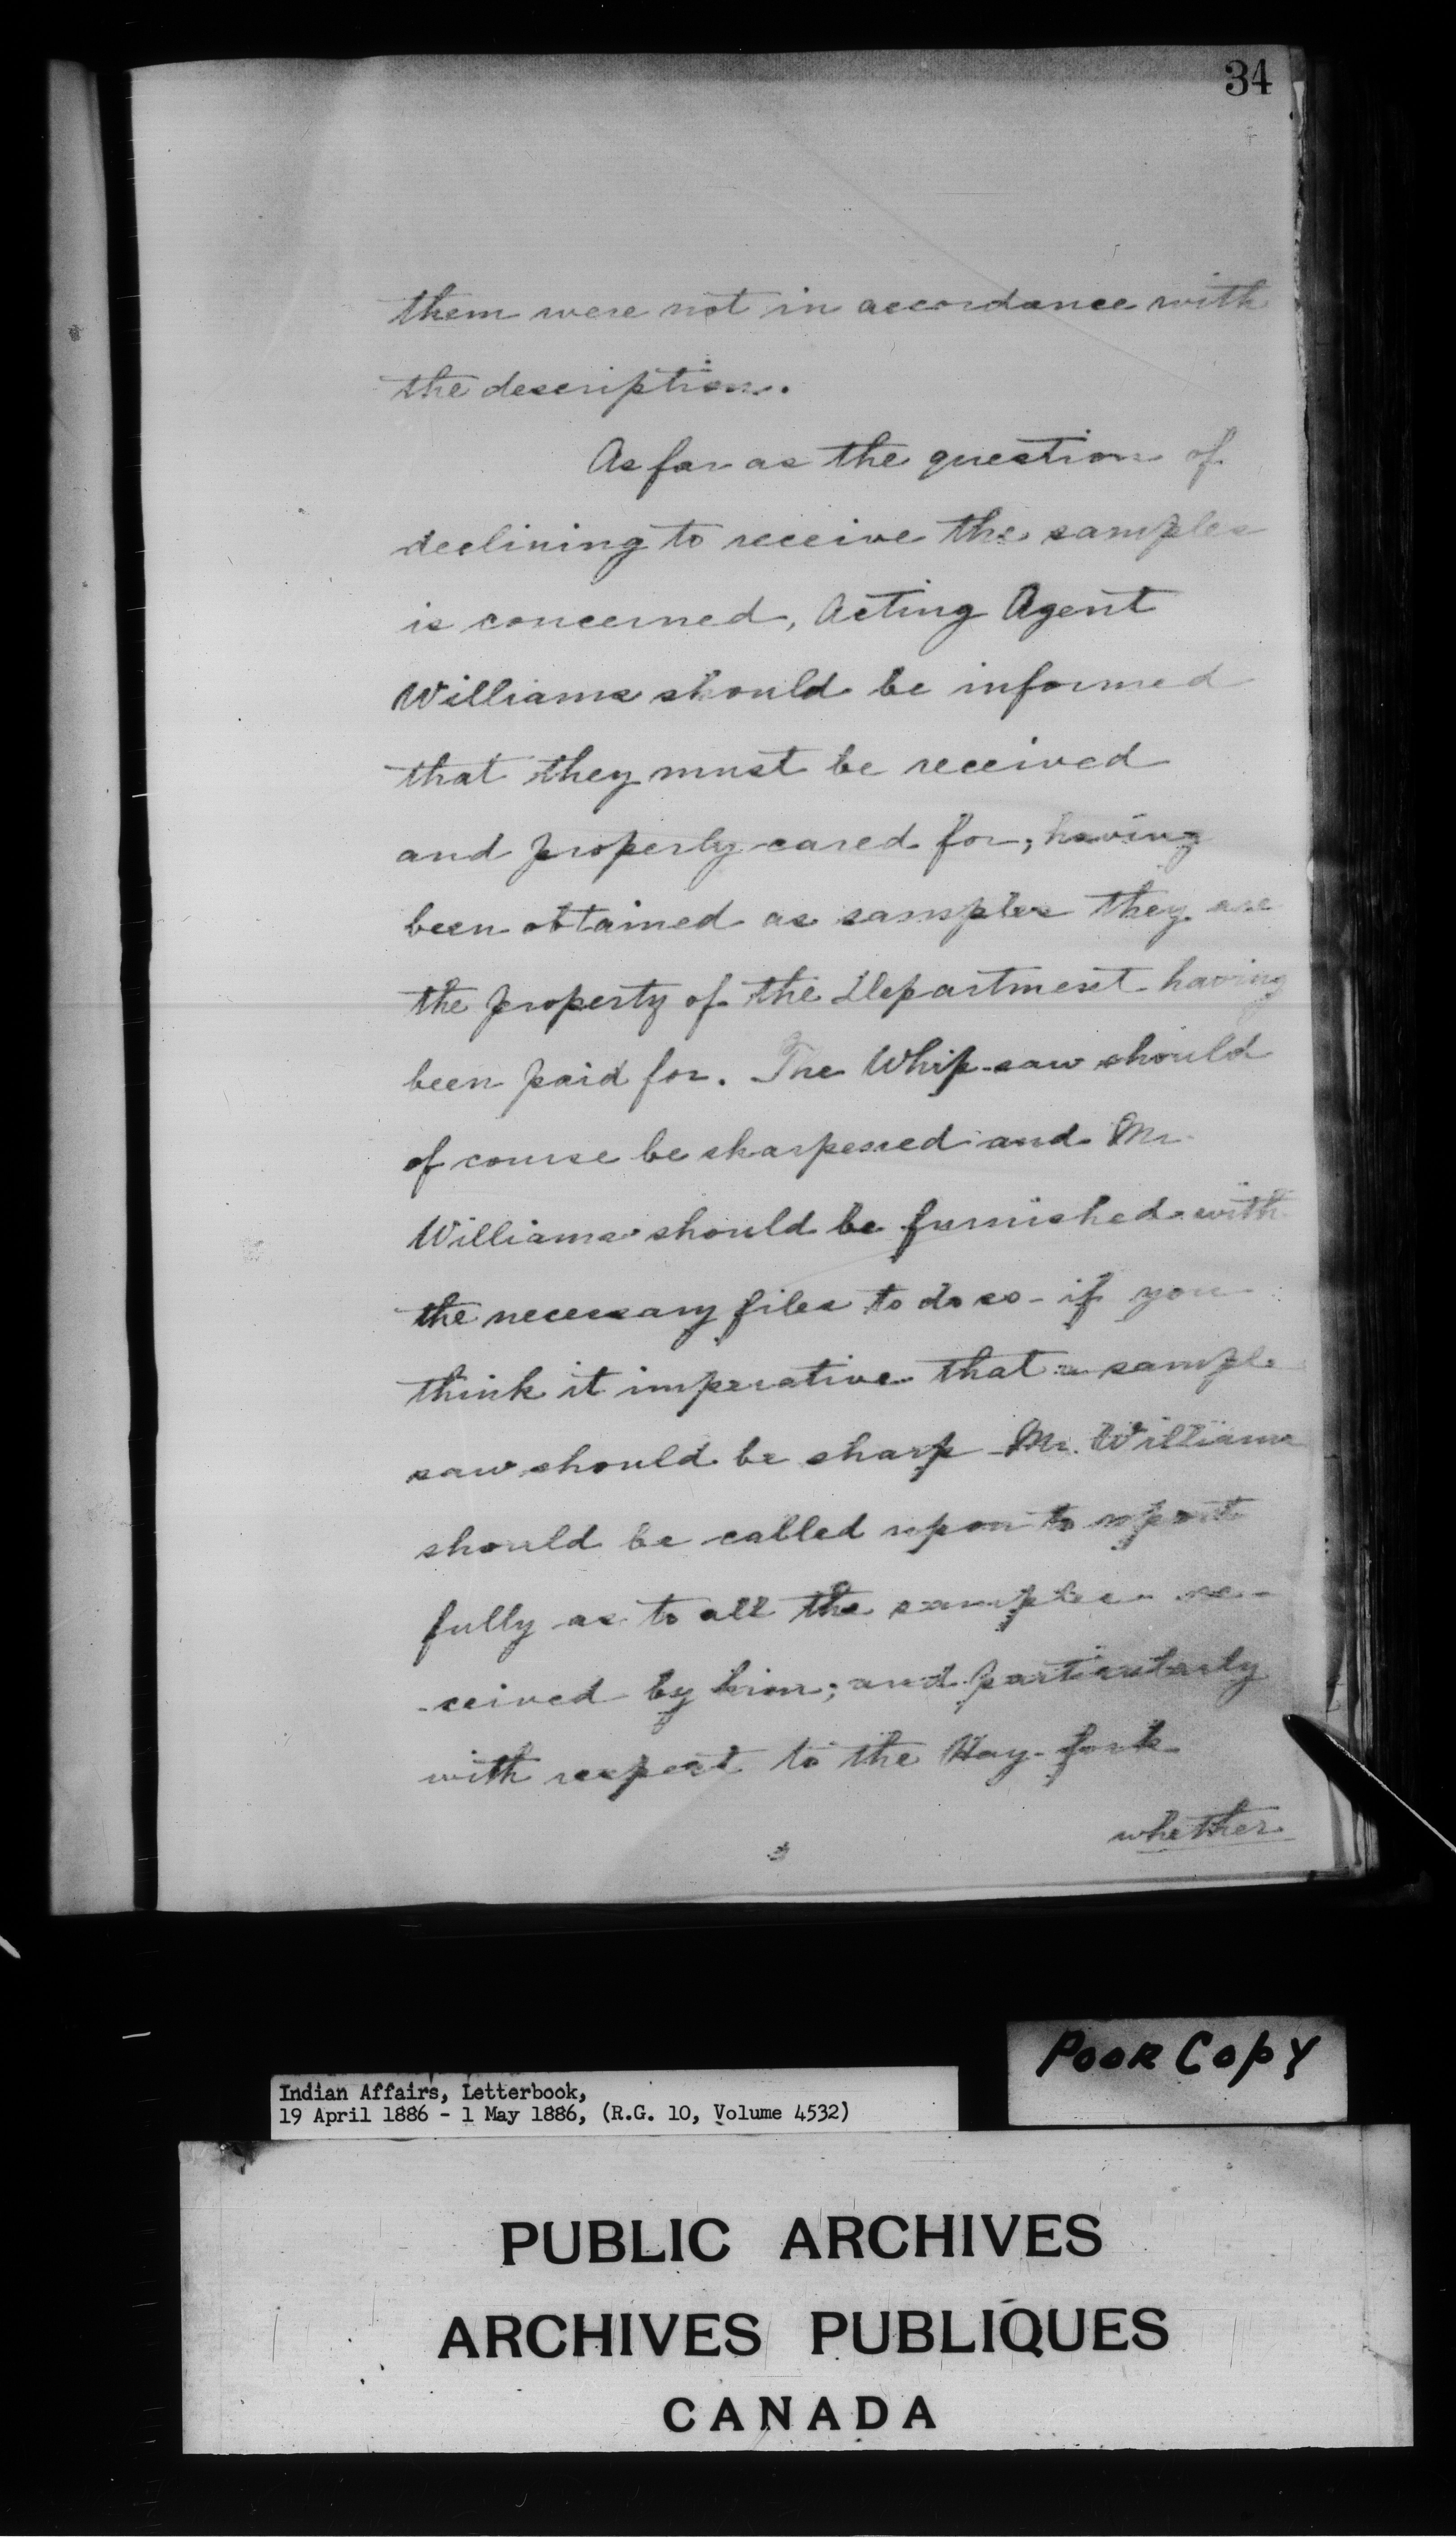 34
them were not in accordance with
the description.
As far as the question of
declining to receive the samples
is concerned, Acting Agent
Williams should be informed
that they must be received
and properly cared for; having
been obtained as samples they are
the property of the Department having
been paid for. The Whip-saw should
of course be sharpened and Mr.
Williams should be furnished with
the necessary files to do so - if you
think it imperative that a sample
saw should be sharp - Mr. Williams
should be called upon to report
fully as to all the samples re-
-ceived by him; and particularly
with respect to the Hay-fork
whether
Poor Copy
Indian Affairs, Letterbook,
19 April 1886 - 1 May 1886, (R.G. 10, Volume 4532)
PUBLIC ARCHIVES
ARCHIVES PUBLIQUES
CANADA